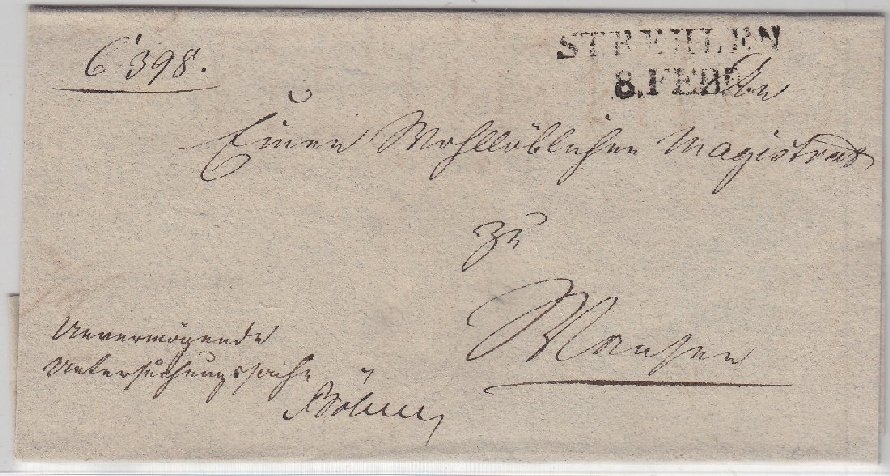 C 398.
STREHLEN
8. FEBR
An
Einen Wohllöblichen Magistrat
zu
Unvermögende
Untersuchungssache
Böhm